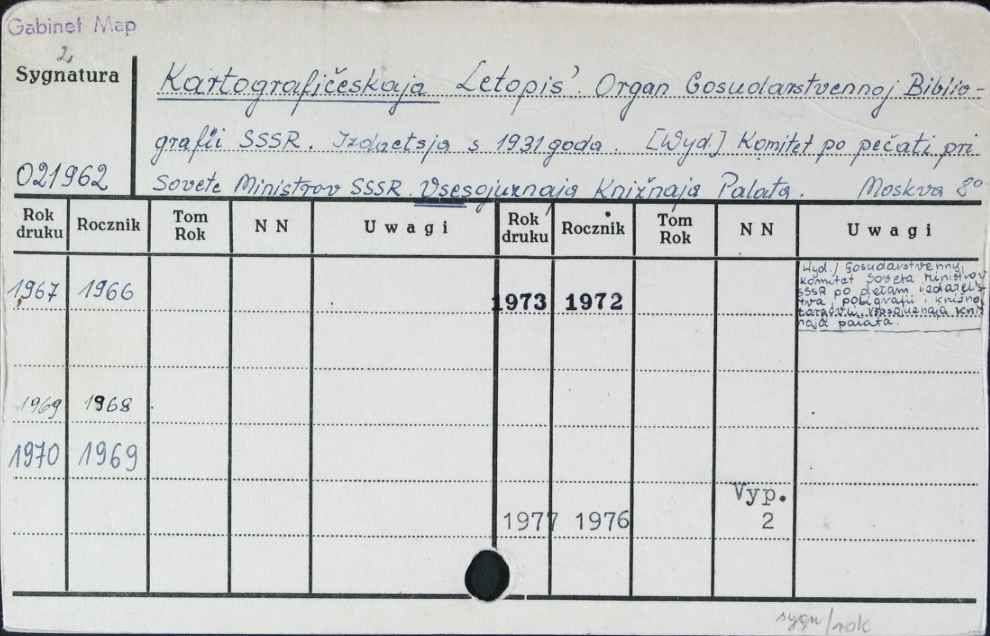 Gabinet Map
2,
Sygnatura
Kartografičeskaja Letopis'. Organ Gosudarstvennoj Biblio-
grafii SSSR. Izdaetsja s 1931 goda. [Wyd.] Komitet po pečati pri
021962
Sovete Ministrov SSSR. Vsesojuznaja Knižnaja Palata. Moskva 8°
Rok druku Rocznik Tom Rok N N Uwagi Rok druku Rocznik Tom Rok N N Uwagi
Wyd./ Gosudarstvennyj
Komitet Soveta Ministrov
SSSR po delam izdatel's-
tva, poligrafii i knižnoj
torgovli, Vsesojuznaja Kniž-
naja palata.
1967 1966
1973 1972
1969 1968
1970 1969
Vyp.
1977 1976 2
sygn/rok